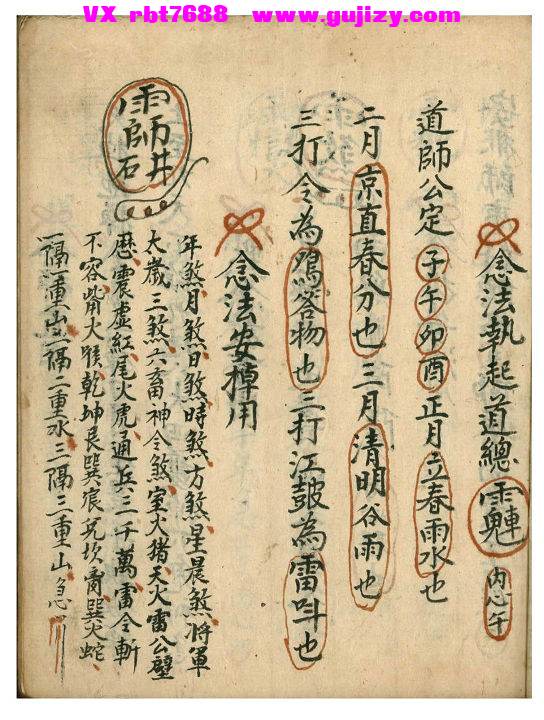 VX rbt7688 www.gujizy.com
念法執起道總 內心午
道師公定子午卯酉正月立春雨水也
二月京直春分也三月清明谷雨也
三打令為鴻答物也三打江鼓為雷呌也
念法安掉用
年煞月煞日煞時煞方煞星晨煞將軍
大歲三煞六畜神令煞室火猪天火雷公壁
歷震虛紅尾火虎通兵三千萬雷令斬
不容觜火猴乾坤艮巽宸兌坎离巽火蛇
一隔一重山二隔二重水三隔三重山急
雷師井石